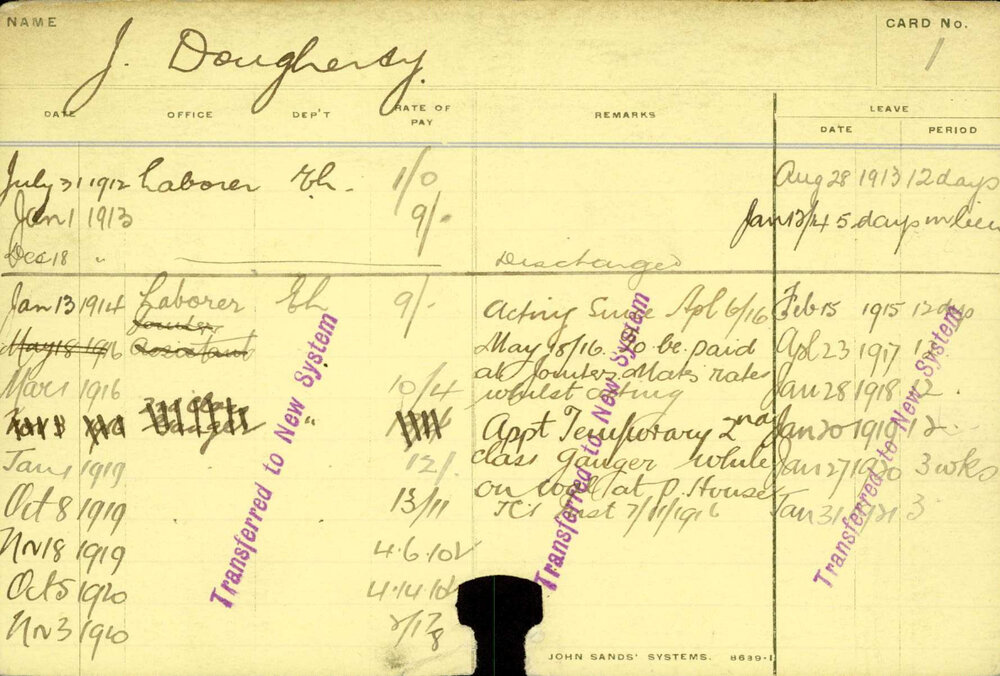 NAME
CARD No.
J. Dougherty
1
DATE OFFICE DEP'T RATE OF PAY REMARKS LEAVE
DATE PERIOD
July 31 1912 Laborer Eh. 1/0 Aug 28 1913 12 days
Jan 1 1913 9/- Jan 13/14 5 days in lieu
Dec 18 " Discharged
Jan 13 1914 Laborer Eh 9/- Acting Since Apl 6/16 Feb 15 1915 12 days
Jointer
May 18 1916 Assistant May 18/16. To be paid Apl 23 1917
at Jointers Mates rates
Mar 1 1916 10/4 whilst acting Jan 28 1918 12
Ganger " Appt Temporary 2nd Jan 20 1919 12
Jan 1 1919 12/- class Ganger while Jan 27 1920 3 wks
on work at P. House
Oct 8 1919 13/11 7/11/1916 Jan 31 1921 3
Nv 18 1919 4.6.10½
Oct 5 1920
Nv 3 1920
Transferred to New System
Transferred to New System
Transferred to New System
JOHN SANDS' SYSTEMS. 8639-1